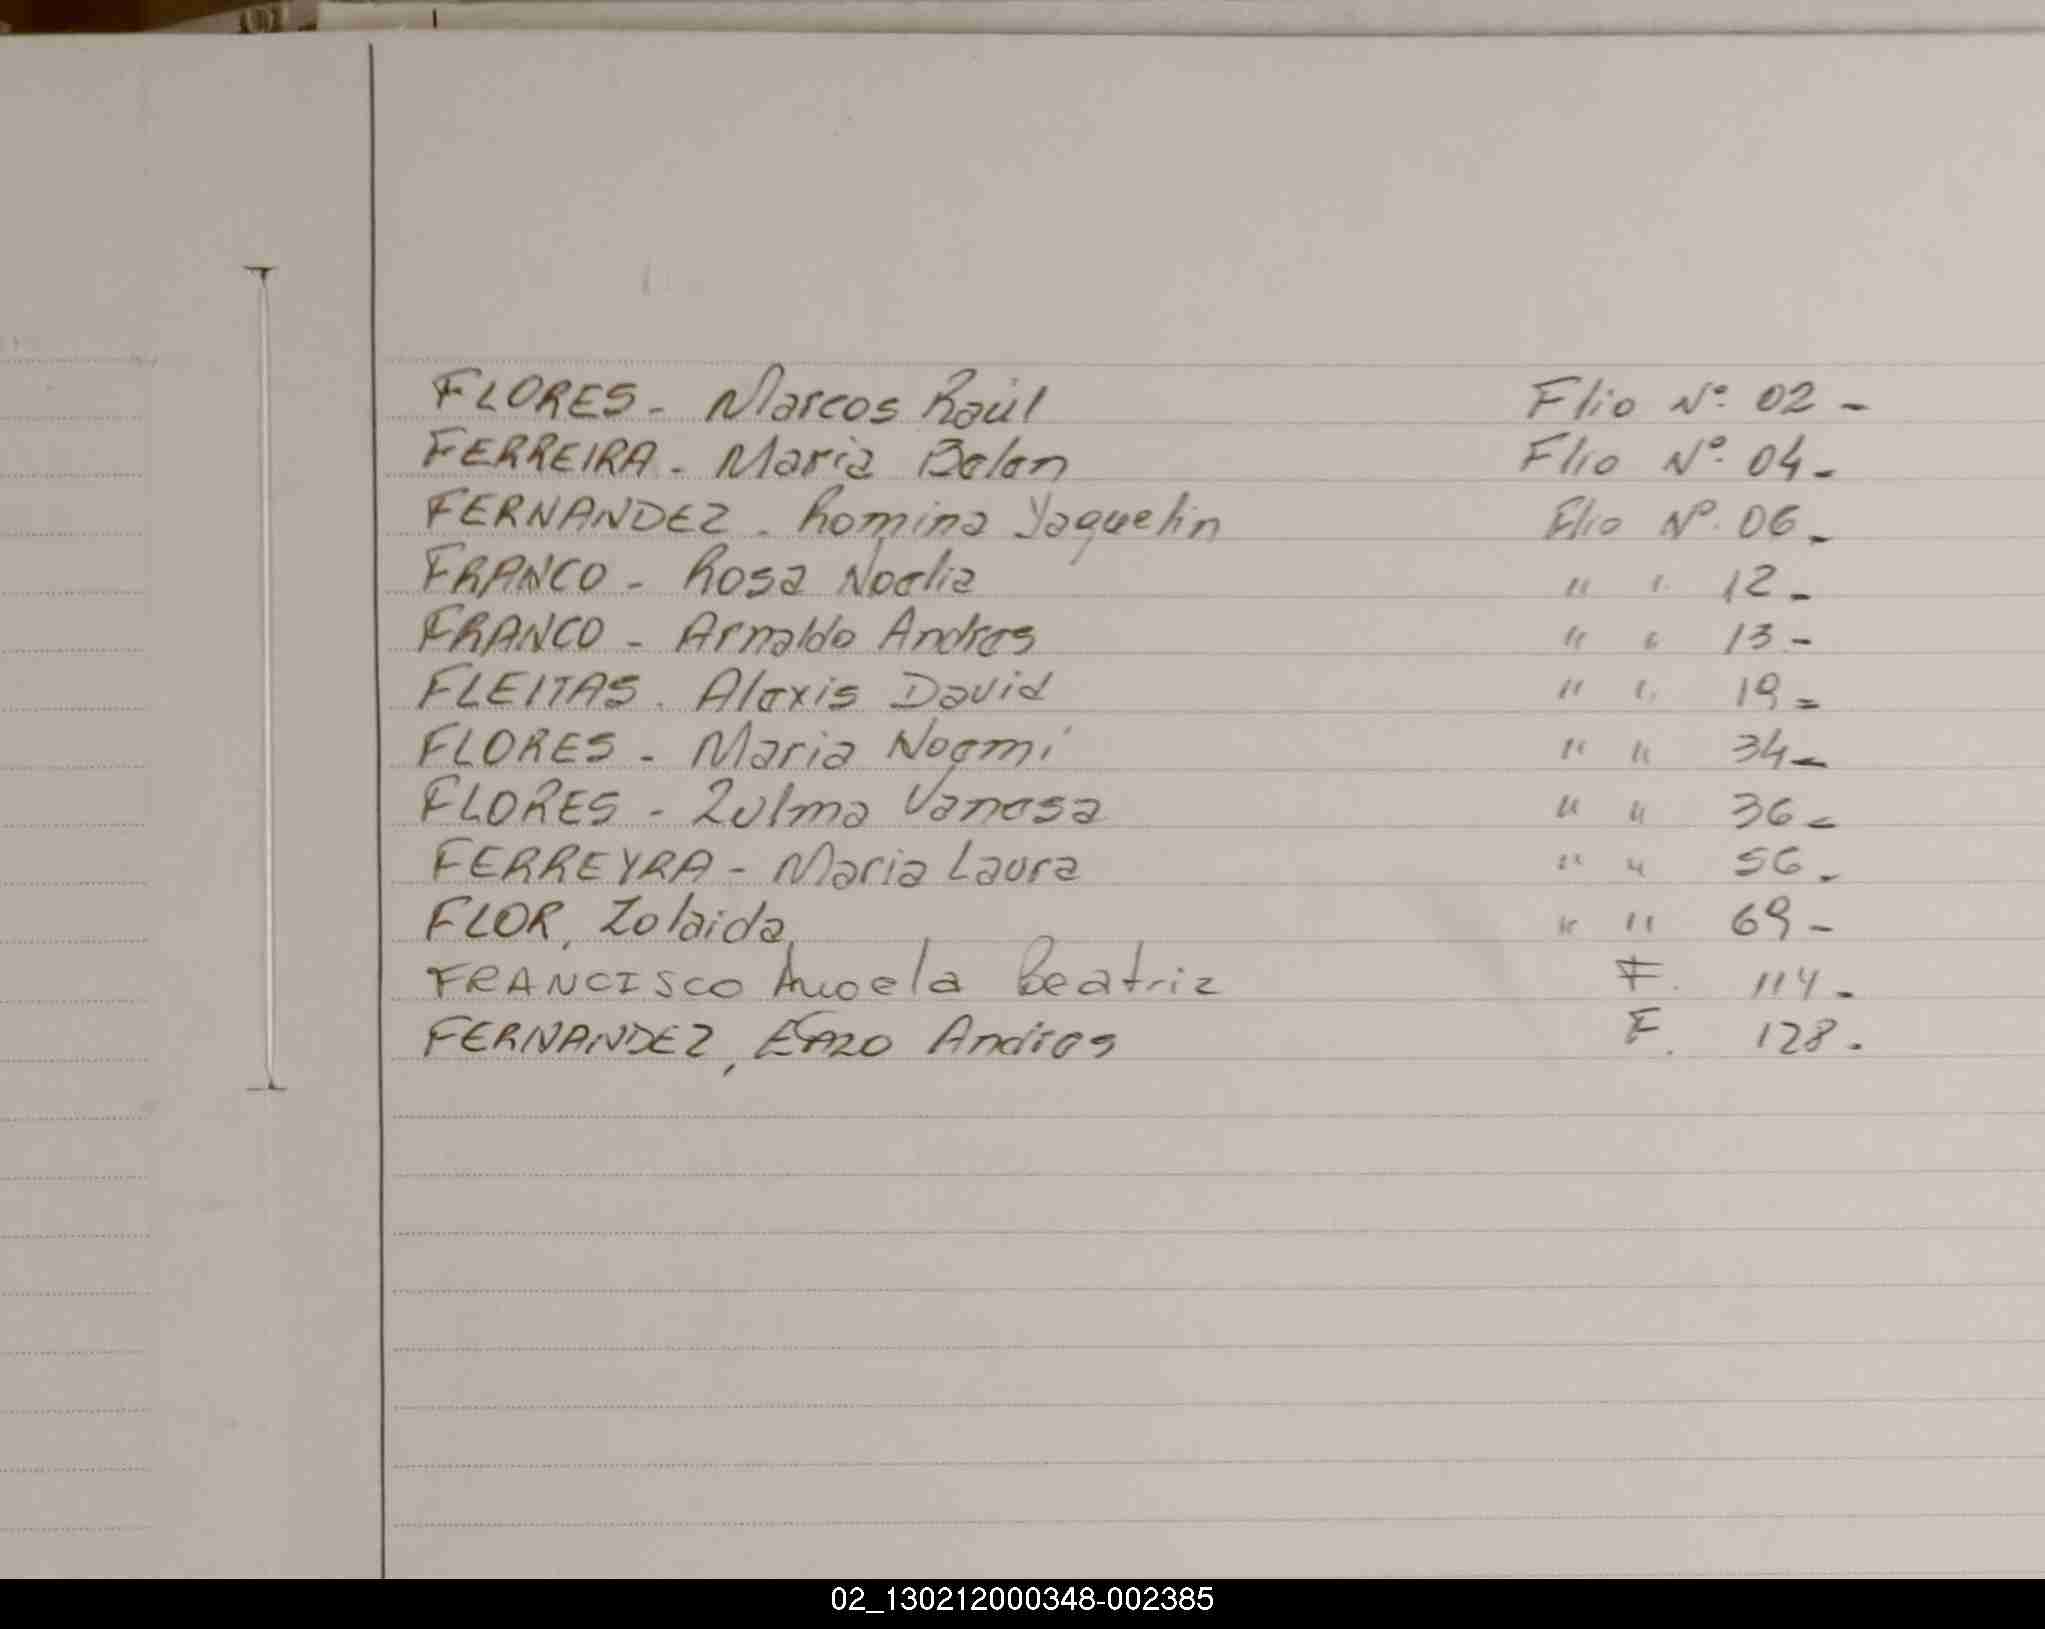 FLORES - Marcos Raúl Flio Nº 02 -
FERREIRA - Maria Belen Flio Nº 04 -
FERNANDEZ - Romina Yaquelin Flio Nº 06 -
FRANCO - Rosa Noelia " " 12 -
FRANCO - Arnaldo Andres " " 13 -
FLEITAS - Alexis David " " 19 -
FLORES - Maria Noemí " " 34 -
FLORES - Zulma Vanesa " " 36 -
FERREYRA - Maria Laura " " 56 -
FLOR, Zolaida " " 69 -
FRANCISCO Angela Beatriz F. 114 -
FERNANDEZ, Enzo Andres F. 128 -
02_130212000348-002385